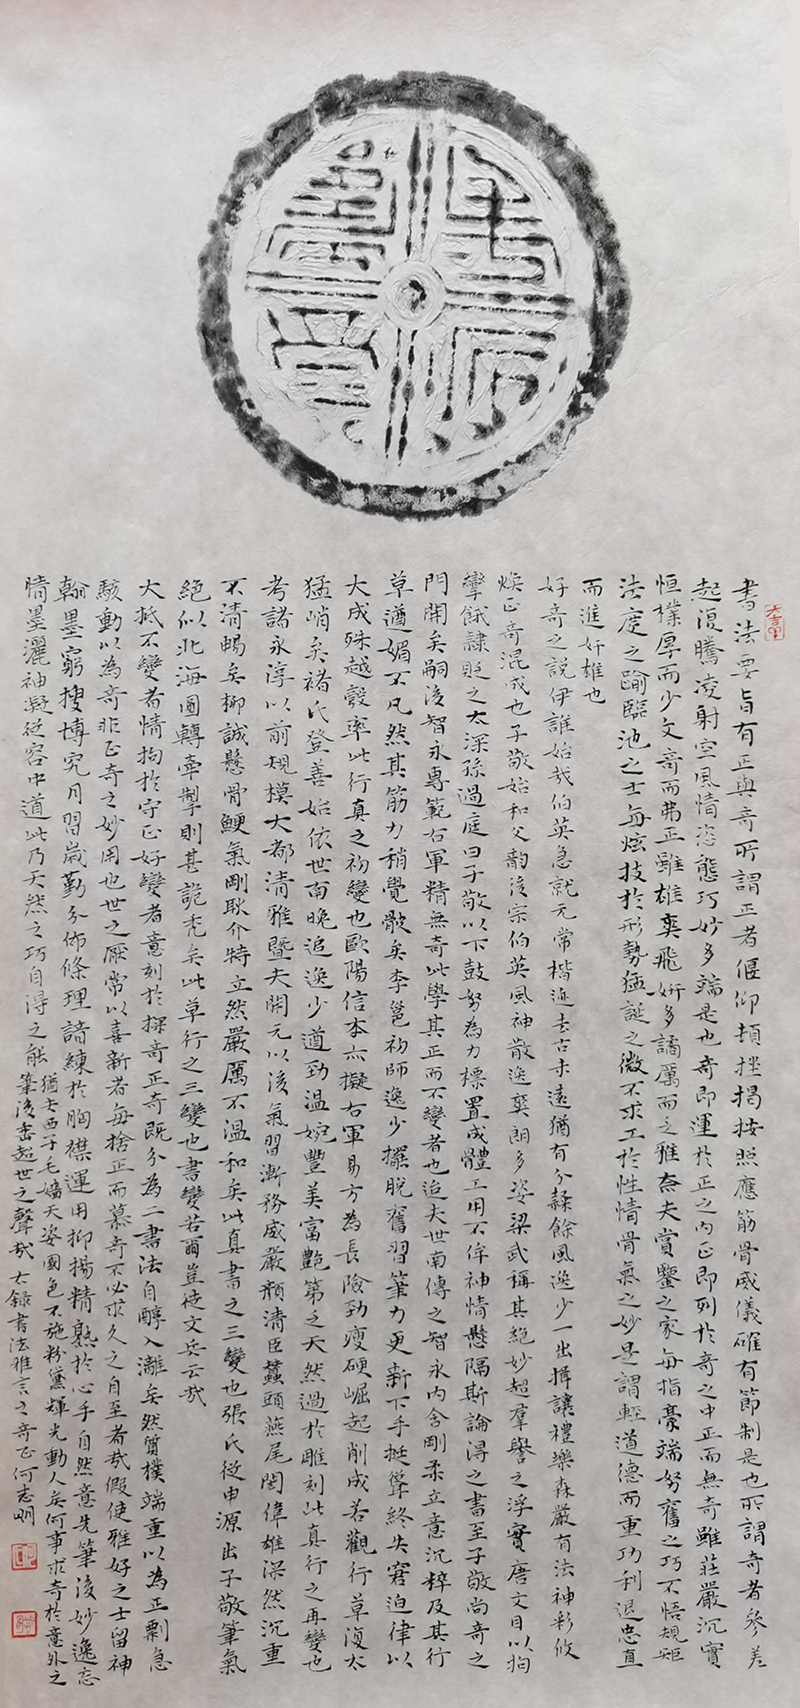 書法要旨有正與奇所謂正者偃仰頓挫揭按照應筋骨威儀確有節制是也所謂奇者參差
起復騰凌射空風情姿態巧妙多端是也奇即運於正之內正即列於奇之中正而無奇雖莊嚴沉實
恒樸厚而少文奇而弗正雖雄爽飛妍多譎厲而乏雅奈夫賞鑒之家每指豪端努奮之巧不悟規矩
法度之踰臨池之士每炫技於形勢猛誕之微不求工於性情骨氣之妙是謂輕道德而重功利退忠直
而進奸雄也
好奇之說伊誰始哉伯英急就元常楷迹去古未遠猶有分隸餘風逸少一出揖讓禮樂森嚴有法神彩攸
煥正奇混成也子敬始和父韵後宗伯英風神散逸爽朗多姿梁武稱其絕妙超羣譽之浮實唐文目以拘
攣餓隸貶之太深孫過庭曰子敬以下鼓努為力標置成體工用不侔神情懸隔斯論得之書至子敬尚奇之
門開矣嗣後智永專範右軍精無奇此學其正而不變者也迨夫世南傳之智永內含剛柔立意沉粹及其行
草遒媚不凡然其筋力稍覺骫矣李邕初師逸少擺脫舊習筆力更新下手挺聳終失窘迫律以
大成殊越彀率此行真之初變也歐陽信本亦擬右軍易方為長險勁瘦硬崛起削成若觀行草復太
猛峭矣褚氏登善始依世南晚追逸少遒勁溫婉豐美富艷第乏天然過於雕刻此真行之再變也
考諸永淳以前規模大都清雅暨夫開元以後氣習漸務威嚴顏清臣蠶頭燕尾閎偉雄深然沉重
不清暢矣柳誠懸骨鯁氣剛耿介特立然嚴厲不溫和矣此真書之三變也張氏從申源出子敬筆氣
絕似北海圓轉牽掣則甚詭禿矣此草行之三變也書變若爾豈徒文兵云哉
大抵不變者情拘於守正好變者意刻於探奇正奇既分為二書法自醇入漓矣然質樸端重以為正剽急
駭動以為奇非正奇之妙用也世之厭常以喜新者每捨正而慕奇不必求久之自至者哉假使雅好之士留神
翰墨窮搜博究月習歲勤分佈條理諳練於胸襟運用抑揚精熟於心手自然意先筆後妙逸忘
情墨灑神凝從容中道此乃天然之巧自得之能猶夫西子毛嬙天姿國色不施粉黛輝光動人矣何事求奇於意外之
筆後垂超世之聲哉 右錄書法雅言之奇正何志明